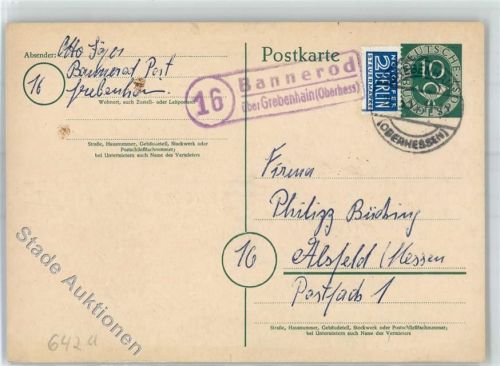 Absender: Otto Jöger
Bannerod Post
Grebenhain.
Wohnort, auch Zustell- oder Leitpostamt
16
Straße, Hausnummer, Gebäudeteil, Stockwerk oder
Postschließfachnummer;
bei Untermietern auch Name des Vermieters
Postkarte
16
Bannerod
über Grebenhain (Oberhess)
NOTOPFER
2 BERLIN
STEUERMARKE
DEUTSCHE POST
10
(OBERHESSEN)
Firma
Philipp Büching
16
Alsfeld / Hessen
Postfach 1
Straße, Hausnummer, Gebäudeteil, Stockwerk oder Postschließfachnummer;
bei Untermietern auch Name des Vermieters
Stade Auktionen